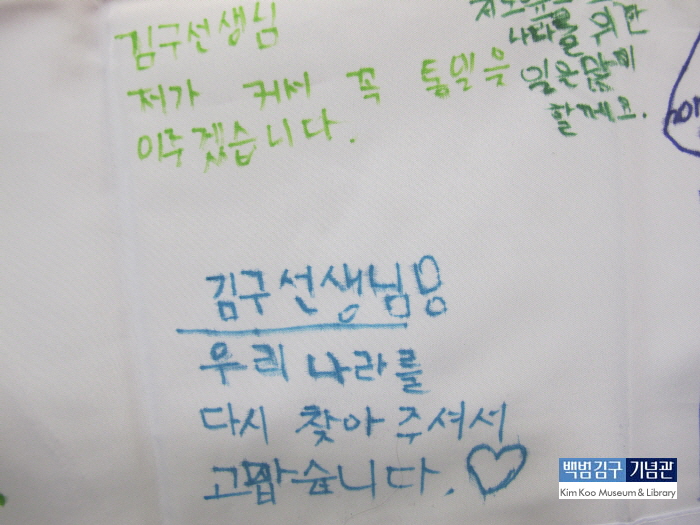 김구선생님
저가 커서 꼭 통일을
이루겠습니다.
나라를 위한
일은 많이
할께요.
김구선생님!!
우리 나라를
다시 찾아 주셔서
고맙습니다.♡
백범김구 기념관
Kim Koo Museum & Library